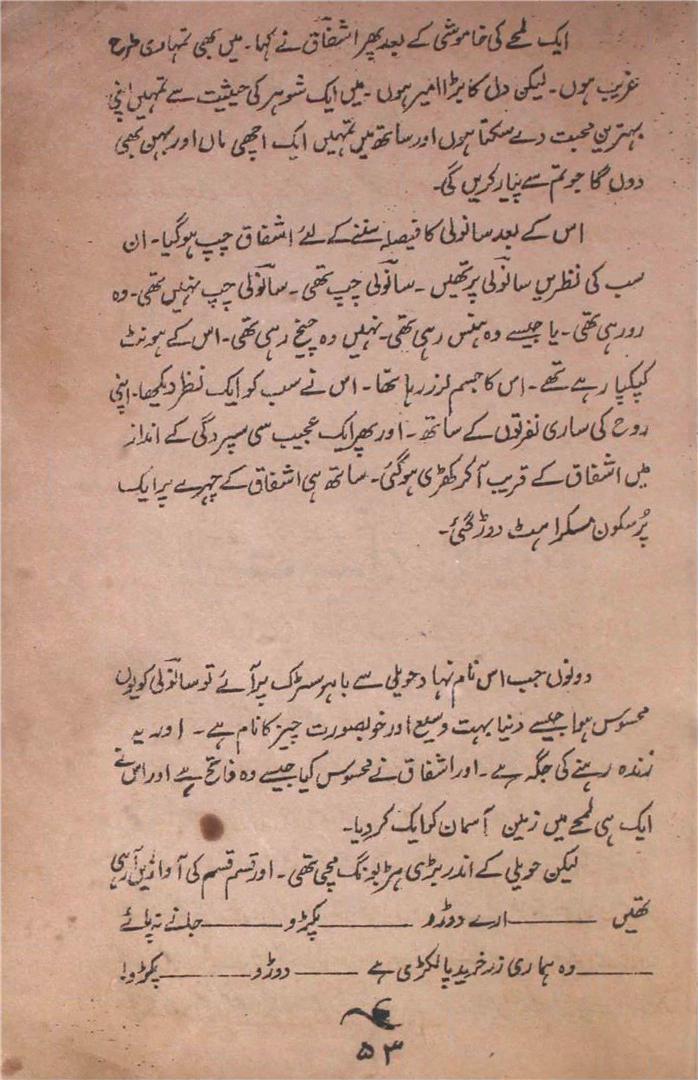 ایک لمحے کی خاموشی کے بعد پھر اشفاق نے کہا۔ میں بھی تمہاری طرح
غریب ہوں۔ لیکن دل کا بڑا امیر ہوں۔ میں ایک شوہر کی حیثیت سے تمہیں اپنی
بہترین محبت دے سکتا ہوں اور ساتھ میں تمہیں ایک اچھی ماں اور بہن بھی
دوں گا جو تم سے پیار کریں گی۔
اس کے بعد سانولی کا فیصلہ سننے کے لئے اشفاق چپ ہوگیا۔ ان
سب کی نظریں سانولی پر تھیں۔ سانولی چپ تھی۔ سانولی چپ نہیں تھی۔ وہ
رو رہی تھی۔ یا جیسے وہ ہنس رہی تھی۔ نہیں وہ چیخ رہی تھی۔ اس کے ہونٹ
کپکپا رہے تھے۔ اس کا جسم لرز رہا تھا۔ اس نے سب کو ایک نظر دیکھا۔ اپنی
روح کی ساری نفرتوں کے ساتھ۔ اور پھر ایک عجیب سی سپردگی کے انداز
میں اشفاق کے قریب آکر کھڑی ہوگئی۔ ساتھ ہی اشفاق کے چہرے پر ایک
پُر سکون مسکراہٹ دوڑ گئی۔
دونوں جب اس نام نہاد حویلی سے باہر سڑک پر آئے تو سانولی کو یوں
محسوس ہوا جیسے دنیا بہت وسیع اور خوبصورت چیز کا نام ہے۔ اور یہ
زندہ رہنے کی جگہ ہے۔ اور اشفاق نے محسوس کیا جیسے وہ فاتح ہے اور اس نے
ایک ہی لمحے میں زمین آسمان کو ایک کر دیا۔
لیکن حویلی کے اندر بڑی ہڑبونگ مچی تھی۔ اور قسم قسم کی آوازیں آ رہی
تھیں ——— ارے دوڑو ——— پکڑو ——— جانے نہ پائے
——— وہ ہماری زر خرید پالکڑی ہے ——— دوڑو ——— پکڑو!
۵۳